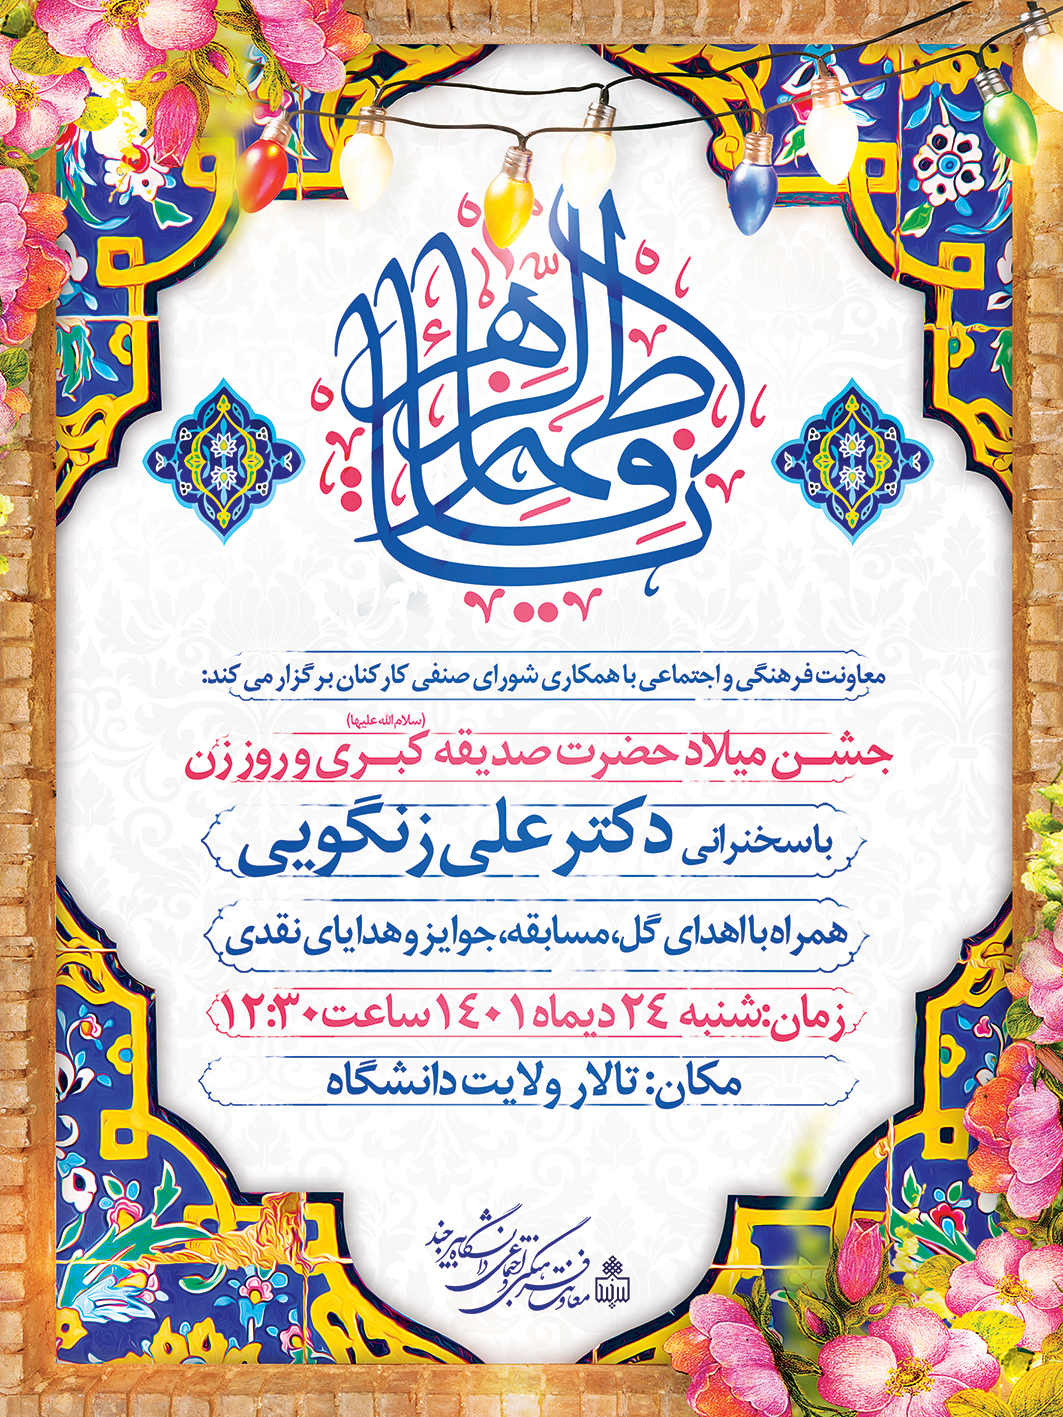 یا فاطمة الزهراء
معاونت فرهنگی و اجتماعی با همکاری شورای صنفی کارکنان برگزار می‌کند:
(سلام الله علیها)
جشن میلاد حضرت صدیقه کبری و روز زن
با سخنرانی دکتر علی زنگویی
همراه با اهدای گل، مسابقه، جوایز و هدایای نقدی
زمان: شنبه ۲۴ دیماه ۱۴۰۱ ساعت ۱۲:۳۰
مکان: تالار ولایت دانشگاه
معاونت فرهنگی و اجتماعی دانشگاه بیرجند